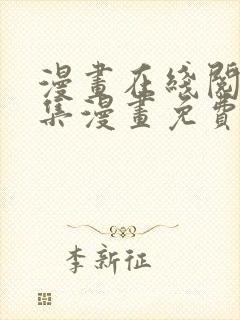 漫畫在綫閱
集漫畫免費
李新征